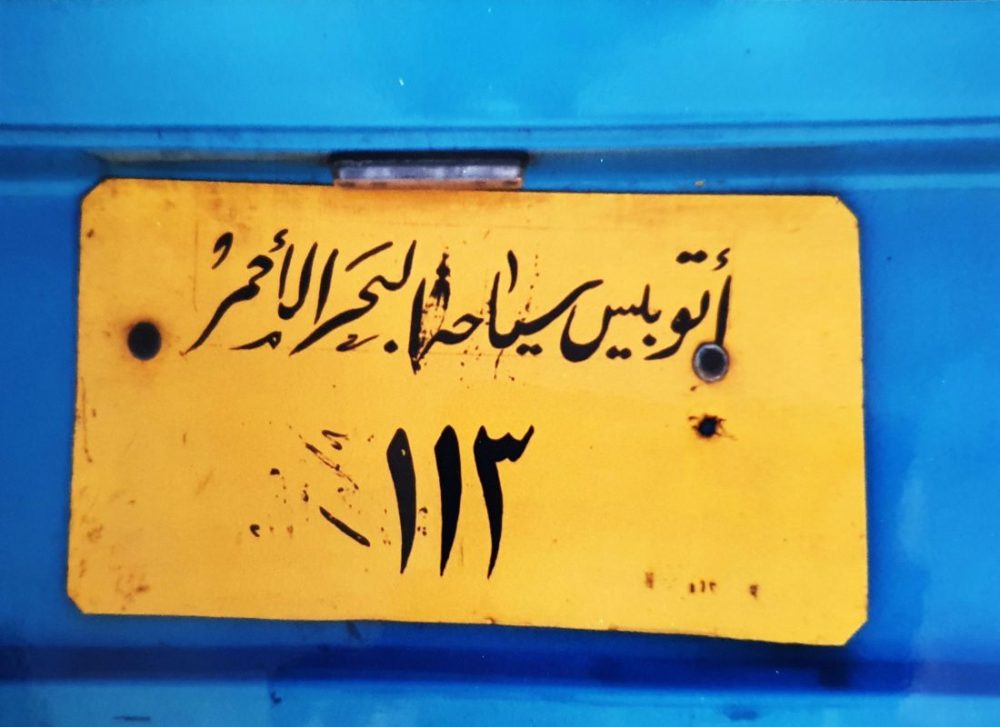 أتوبيس سياحة البحر الأحمر
١١٣